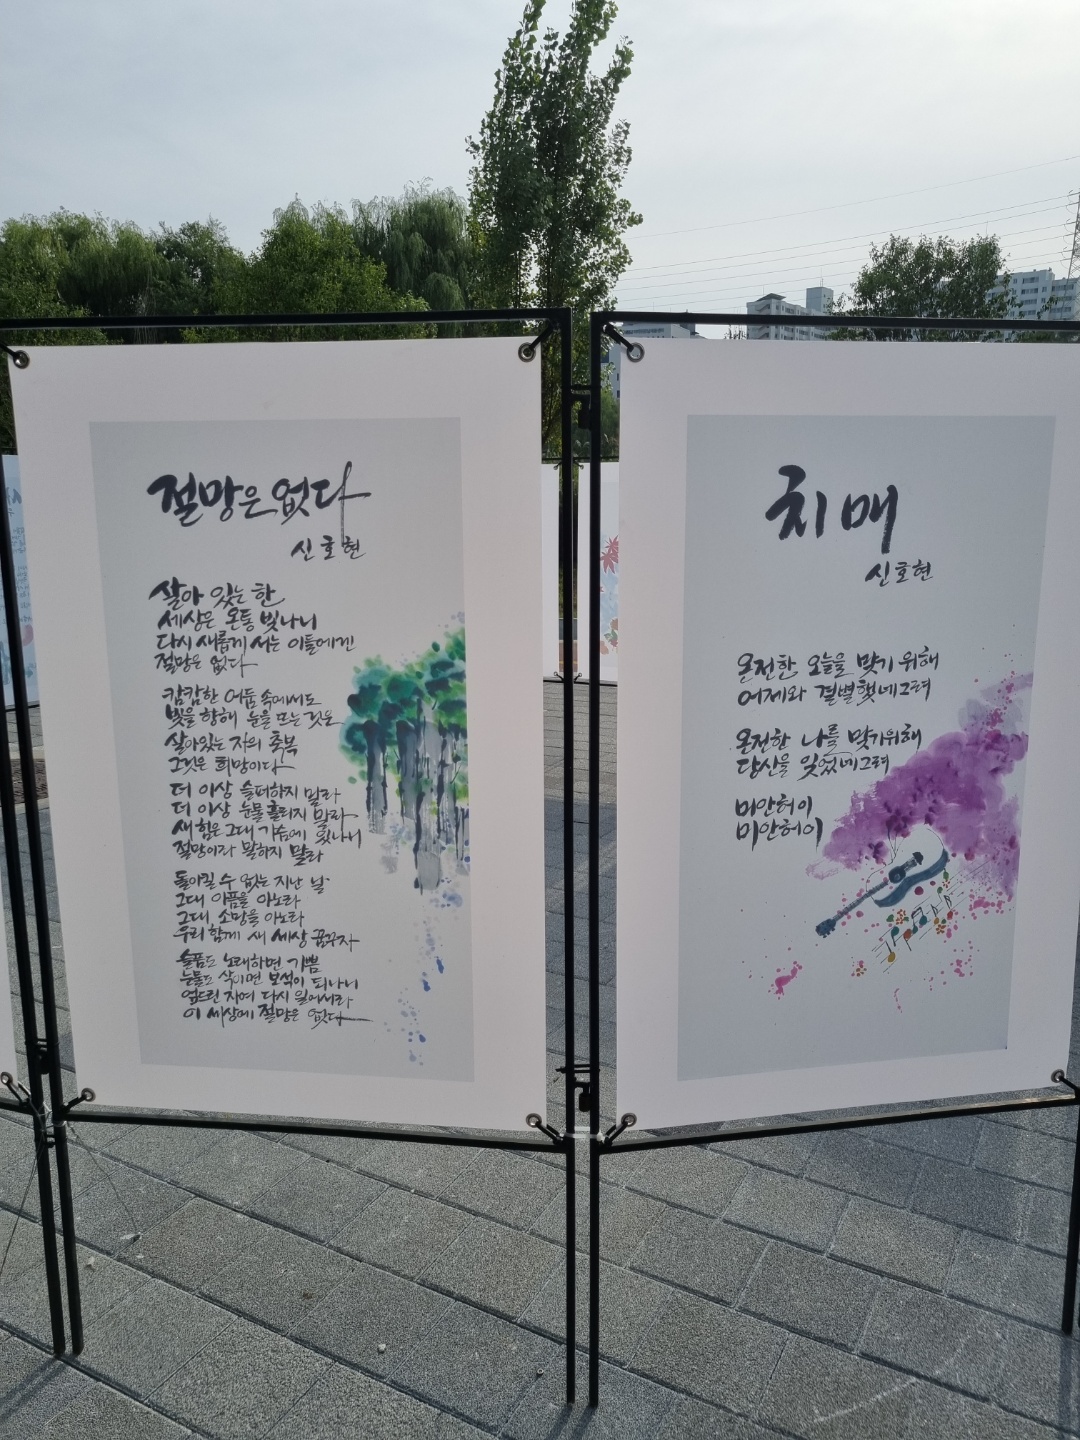 절망은 없다
신호현
살아 있는 한
세상은 온통 빛나니
다시 새롭게 서는 이들에겐
절망은 없다
캄캄한 어둠 속에서도
빛을 향해 눈을 뜨는 것은
살아있는 자의 축복
그것은 희망이다
더 이상 슬퍼하지 말라
더 이상 눈물 흘리지 말라
새 힘은 그대 가슴에 빛나니
절망이라 말하지 말라
돌이킬 수 없는 지난 날
그대 아픔을 아노라
그대 소망을 아노라
우리 함께 새 세상 꿈꾸자
슬픔도 노래하면 기쁨
눈물도 삭이면 보석이 되나니
엎드린 자여 다시 일어서라
이 세상에 절망은 없다
치매
신호현
온전한 오늘을 맞기 위해
어제와 결별했네그려
온전한 나를 맞기위해
당신을 잊었네그려
미안허이
미안허이